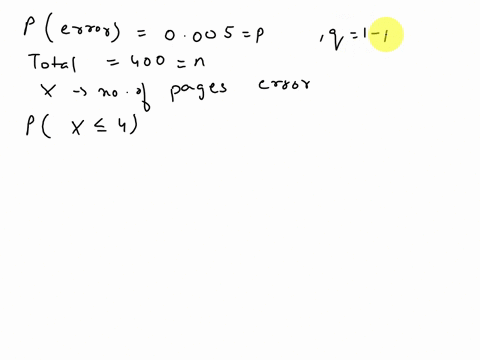 P(error) = 0.005 = p , q = 1-
Total = 400 = n
X → no. of pages error
P( X ≤ 4)